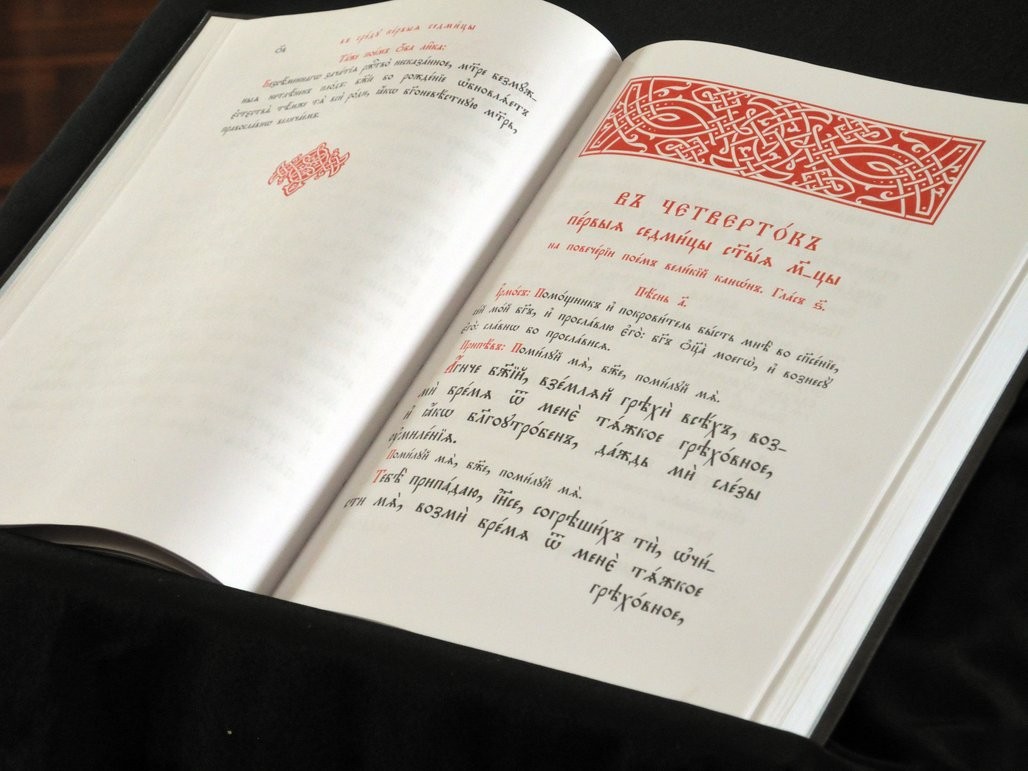 въ сре́дꙋ пе́рвыѧ седми́цы
Та́же пое́мъ ѻ҆́ба ли́ка:
Безсѣ́меннагѡ зача́тїѧ ржⷭ҇тво̀ несказа́нное, мт҃ре безмꙋ́ж-
ныѧ нетлѣ́ненъ пло́дъ: бж҃їе бо рожде́нїе ѡ҆бновлѧ́етъ
є҆стества̀. тѣ́мже тѧ̀ всѝ ро́ди, ꙗ҆́кѡ бг҃оневѣ́стнꙋю мт҃рь,
правосла́внѡ велича́емъ.
въ четверто́къ
пе́рвыѧ седми́цы ст҃ы́ѧ м҃-цы
на повече́рїи пое́мъ вели́кїй канѡ́нъ. Гла́съ ѕ҃.
Пѣ́снь а҃.
І҆рмо́съ: Помо́щникъ и҆ покрови́тель бы́сть мнѣ̀ во спⷭ҇е́нїе,
се́й мо́й бг҃ъ, и҆ просла́влю є҆го̀: бг҃ъ ѻ҆ц҃а̀ моегѡ̀, и҆ вознесꙋ̀
є҆го̀: сла́внѡ бо просла́висѧ.
Припѣ́въ: Поми́лꙋй мѧ̀, бж҃е, поми́лꙋй мѧ̀.
А҆́гнче бж҃їй, взе́млѧй грѣхѝ всѣ́хъ, воз-
мѝ бре́мѧ ѿ менє̀ тѧ́жкое грѣхо́вное,
и҆ ꙗ҆́кѡ блг҃оꙋтро́бенъ, да́ждь мѝ сле́зы
ᲂу҆миле́нїѧ.
Поми́лꙋй мѧ̀, бж҃е, поми́лꙋй мѧ̀.
Тебѣ̀ припа́даю, і҆и҃се, согрѣши́хъ тѝ, ѡ҆чи́-
сти мѧ̀, возмѝ бре́мѧ ѿ менє̀ тѧ́жкое
грѣхо́вное,